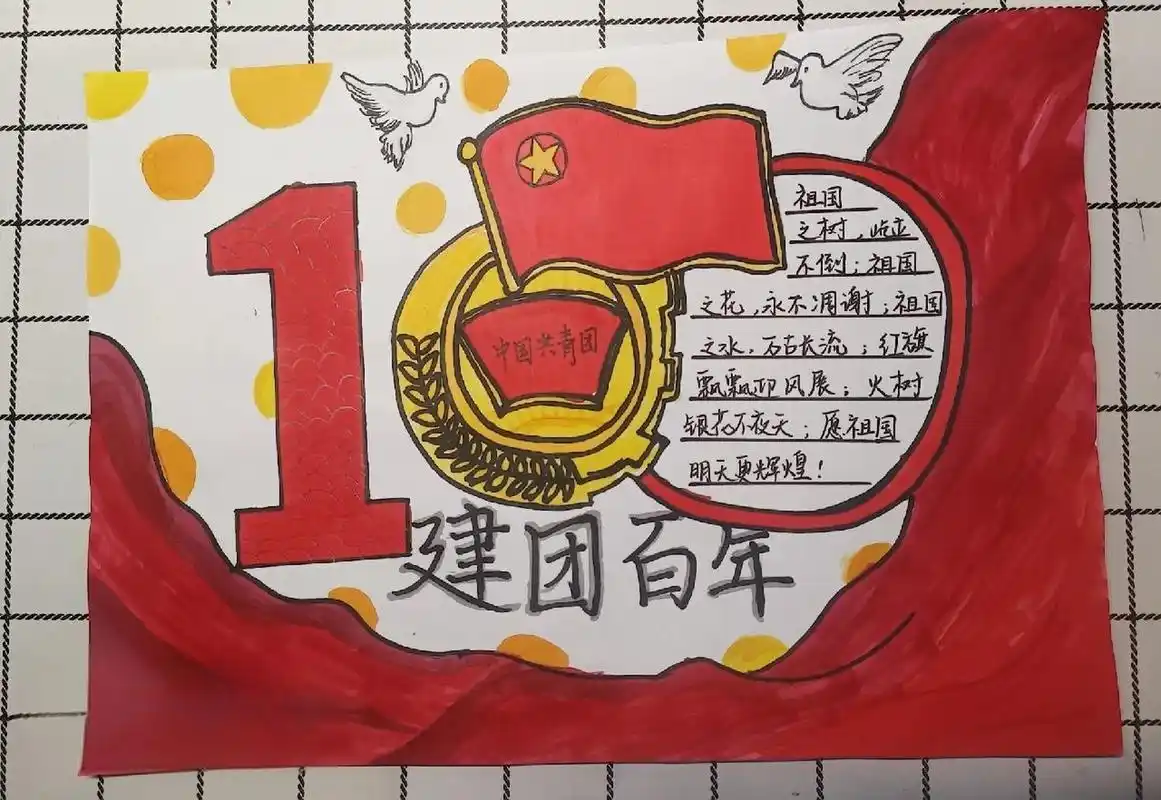 10
中国共青团
祖国
之树，屹立
不倒；祖国
之花，永不凋谢；祖国
之水，万古长流；红旗
飘飘迎风展；火树
银花不夜天；愿祖国
明天更辉煌！
建团百年